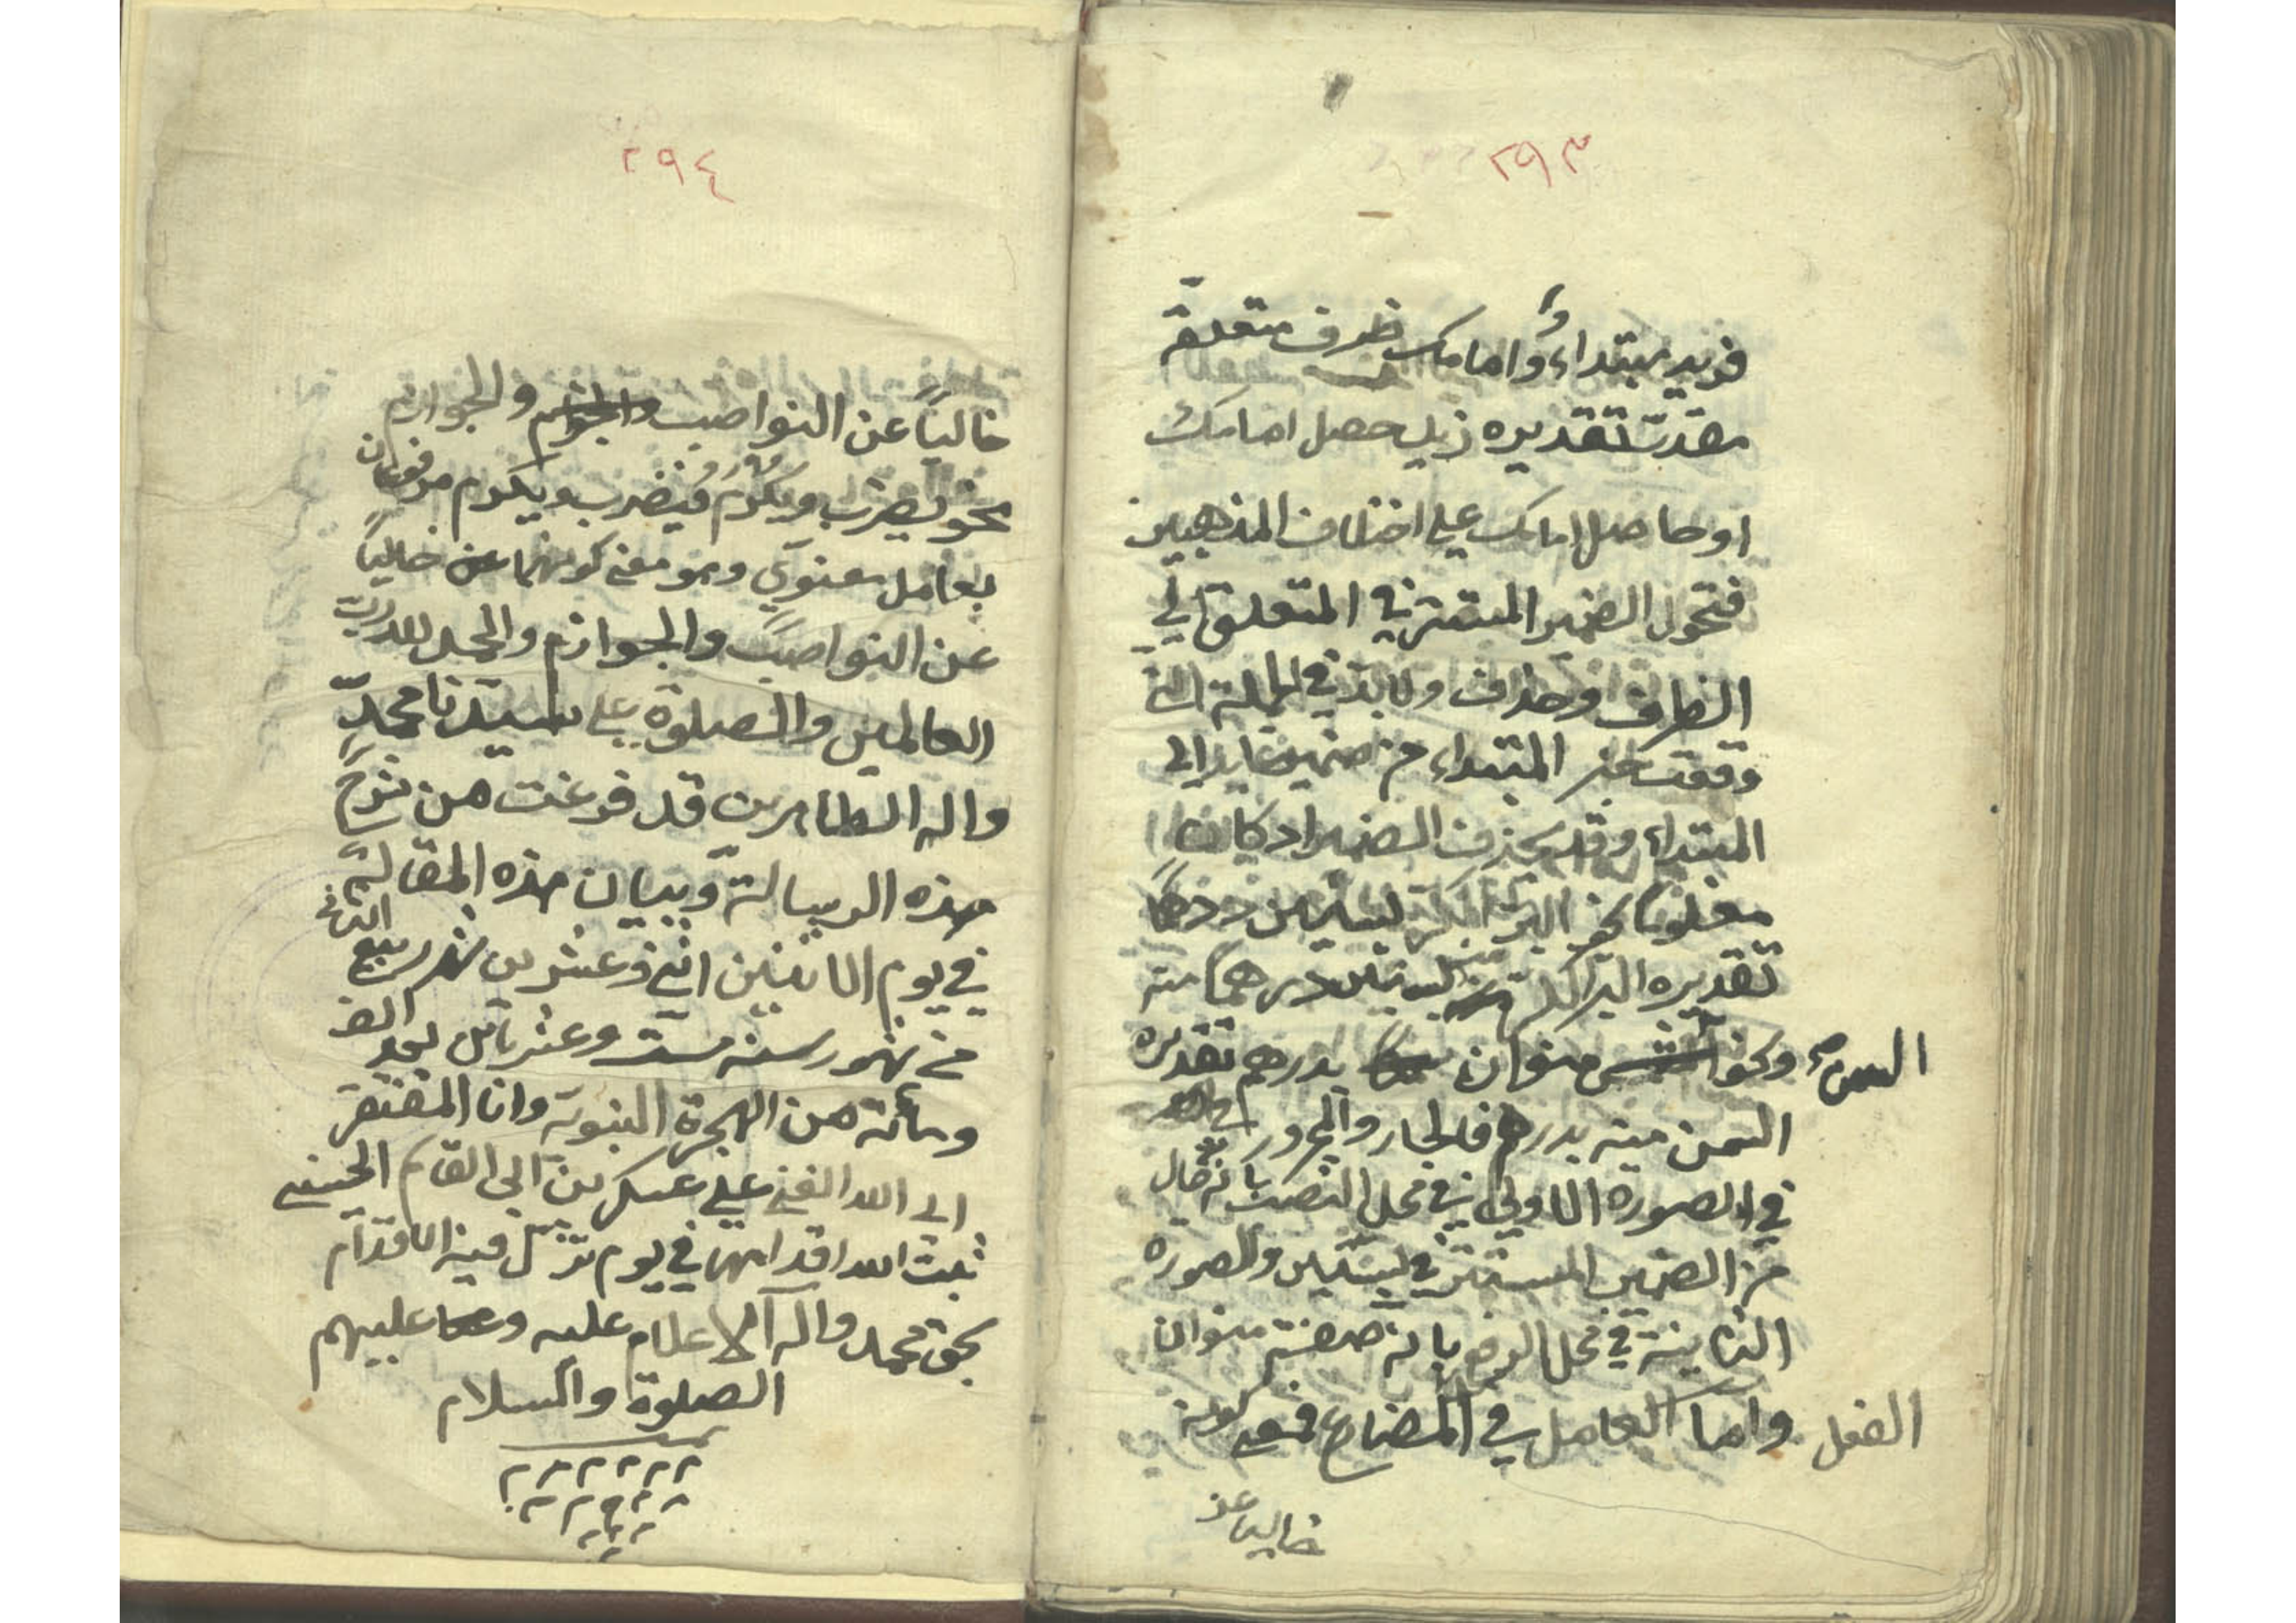 ٢٩٣
فزيد مبتداء وامامك ظرف متعلقة
مقدر تقديره زيد حصل امامك
او حاصل امامك على اختلاف المذهبين
فتحول الضمير المستتر في المتعلق الى
الظرف وحذف ولابد في الجملة التي
وقعت خبر المبتداء من ضمير عايد الى
المبتداء وقد يحذف الضمير اذ كان
معلوما نحو البر الكر بستين درهما
تقديره البر الكر منه بستين درهما منه
ونحو السمن منوان بدرهم تقديره
السمن منه بدرهم فالجار والمجرور
في الصورة الاولى في محل النصب بانه حال
من الضمير المستتر في بستين والصورة
الثانية في محل الرفع بانه صفة منوان
واما العامل في المضارع فمعنى كونه
الفعل
خاليا عن
٢٩٤
خالياً عن النواصب والجوازم
نحو يضرب ويكرم فيضرب ويكرم مرفوعان
بعامل معنوي وهو معنى كونهما خالياً
عن النواصب والجوازم والحمد لله رب
العالمين والصلوة على سيدنا محمد
واله الطاهرين قد فرغت من شرح
هذه الرسالة وبيان هذه المقالة
في يوم الاثنين اثني وعشرين شهر ربيع الثاني
من شهور سنة ست وعشرين بعد الف
ومائة من الهجرة النبوية وانا المفتقر
الى الله الغني علي عسكر بن ابي القاسم الحسيني
ثبت الله اقدامهما في يوم تزل فيه الاقدام
بحق محمد واله الاعلام عليه وعليهم
الصلوة والسلام